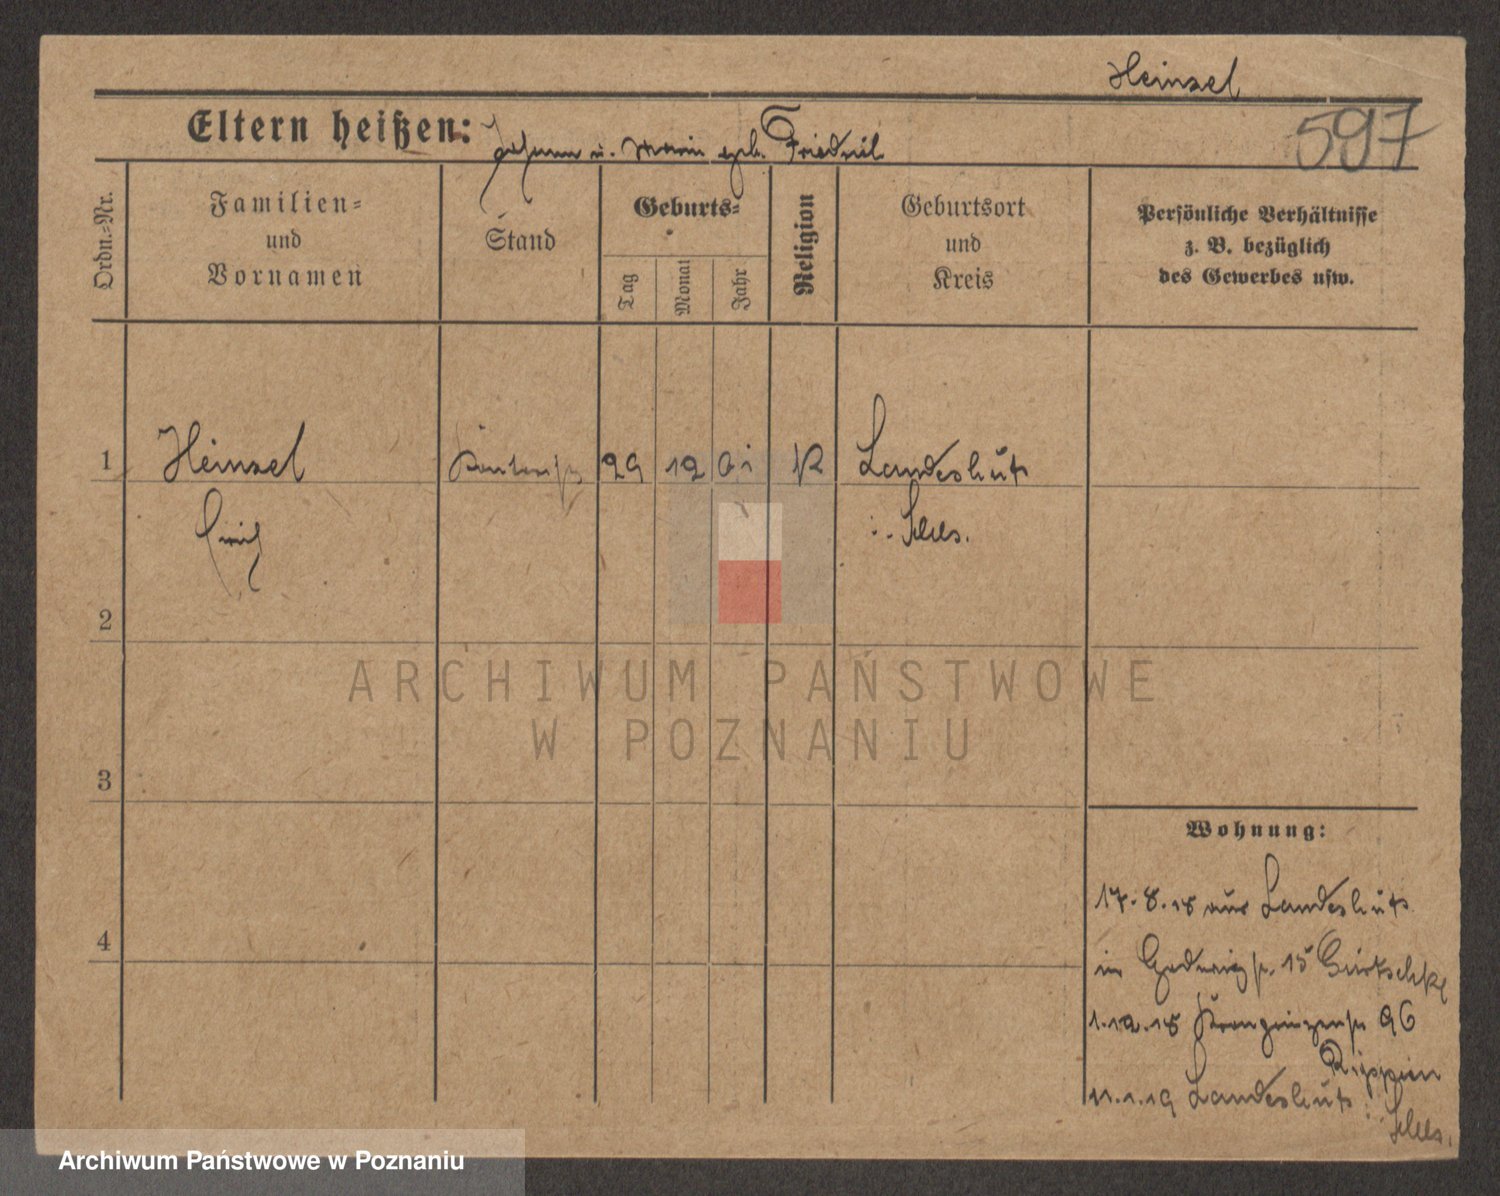 Heinzel
597
Eltern heißen: Johann u. Marie geb.
Ordn.-Nr.
Familien-
und
Vornamen
Stand
Geburts-
Tag
Monat
Jahr
Religion
Geburtsort
und
Kreis
Persönliche Verhältnisse
z. B. bezüglich
des Gewerbes usw.
1
Heinzel
29
12
01
K
Landeshut
i. Schles.
2
3
4
Wohnung:
17.8.18 aus Landeshut
in Hedwigstr. 15
1.12.18 Kronprinzenstr 96
11.1.19 Landeshut i. Schles.
ARCHIWUM PAŃSTWOWE
W POZNANIU
Archiwum Państwowe w Poznaniu